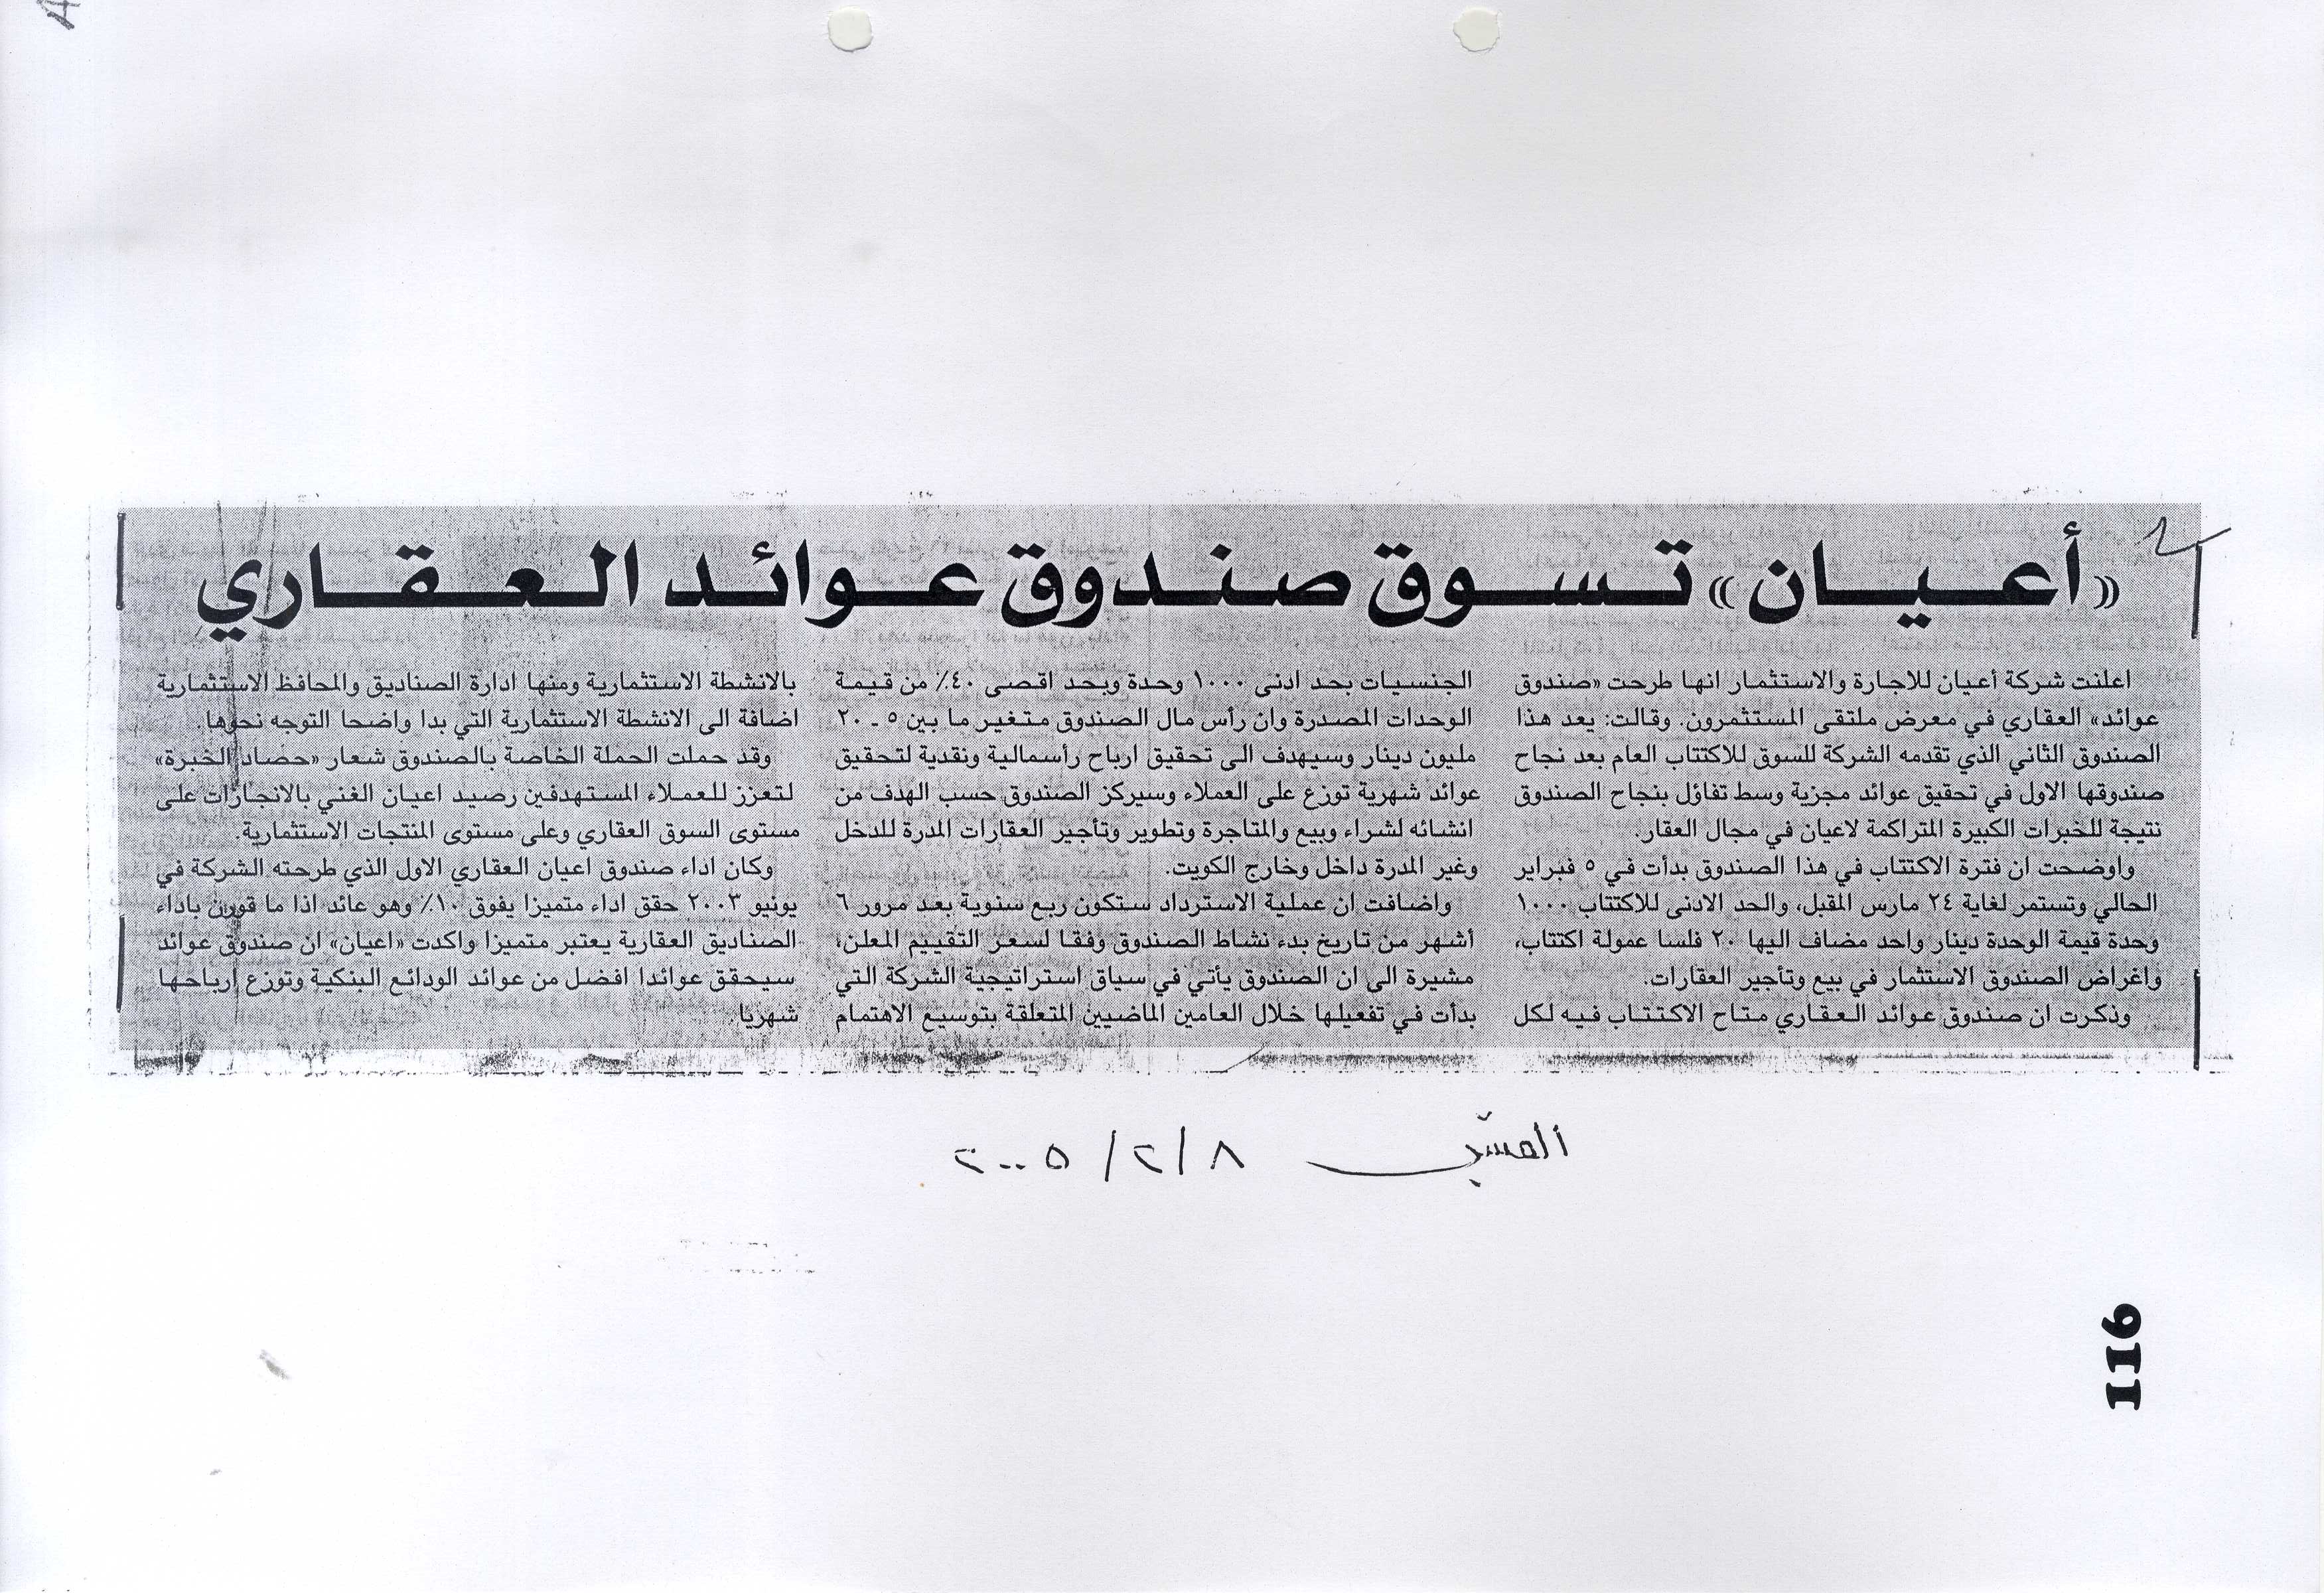 «أعيان» تسوق صندوق عوائد العقاري
اعلنت شركة أعيان للاجارة والاستثمار انها طرحت «صندوق
عوائد» العقاري في معرض ملتقى المستثمرون. وقالت: يعد هذا
الصندوق الثاني الذي تقدمه الشركة للسوق للاكتتاب العام بعد نجاح
صندوقها الاول في تحقيق عوائد مجزية وسط تفاؤل بنجاح الصندوق
نتيجة للخبرات الكبيرة المتراكمة لاعيان في مجال العقار.
واوضحت ان فترة الاكتتاب في هذا الصندوق بدأت في ٥ فبراير
الحالي وتستمر لغاية ٢٤ مارس المقبل، والحد الادنى للاكتتاب ١٠٠٠
وحدة قيمة الوحدة دينار واحد مضاف اليها ٢٠ فلسا عمولة اكتتاب،
واغراض الصندوق الاستثمار في بيع وتأجير العقارات.
وذكرت ان صندوق عوائد العقاري متاح الاكتتاب فيه لكل
الجنسيات بحد ادنى ١٠٠٠ وحدة وبحد اقصى ٤٠٪ من قيمة
الوحدات المصدرة وان رأس مال الصندوق متغير ما بين ٥ ـ ٢٠
مليون دينار وسيهدف الى تحقيق ارباح رأسمالية ونقدية لتحقيق
عوائد شهرية توزع على العملاء وسيركز الصندوق حسب الهدف من
انشائه لشراء وبيع والمتاجرة وتطوير وتأجير العقارات المدرة للدخل
وغير المدرة داخل وخارج الكويت.
واضافت ان عملية الاسترداد ستكون ربع سنوية بعد مرور ٦
أشهر من تاريخ بدء نشاط الصندوق وفقا لسعر التقييم المعلن،
مشيرة الى ان الصندوق يأتي في سياق استراتيجية الشركة التي
بدأت في تفعيلها خلال العامين الماضيين المتعلقة بتوسيع الاهتمام
بالانشطة الاستثمارية ومنها ادارة الصناديق والمحافظ الاستثمارية
اضافة الى الانشطة الاستثمارية التي بدا واضحا التوجه نحوها.
وقد حملت الحملة الخاصة بالصندوق شعار «حصاد الخبرة»
لتعزز للعملاء المستهدفين رصيد اعيان الغني بالانجازات على
مستوى السوق العقاري وعلى مستوى المنتجات الاستثمارية.
وكان اداء صندوق اعيان العقاري الاول الذي طرحته الشركة في
يونيو ٢٠٠٣ حقق اداء متميزا يفوق ١٠٪ وهو عائد اذا ما قورن باداء
الصناديق العقارية يعتبر متميزا واكدت «اعيان» ان صندوق عوائد
سيحقق عوائدا افضل من عوائد الودائع البنكية وتوزع ارباحها
شهريا.
٨/٢/٢٠٠٥
116